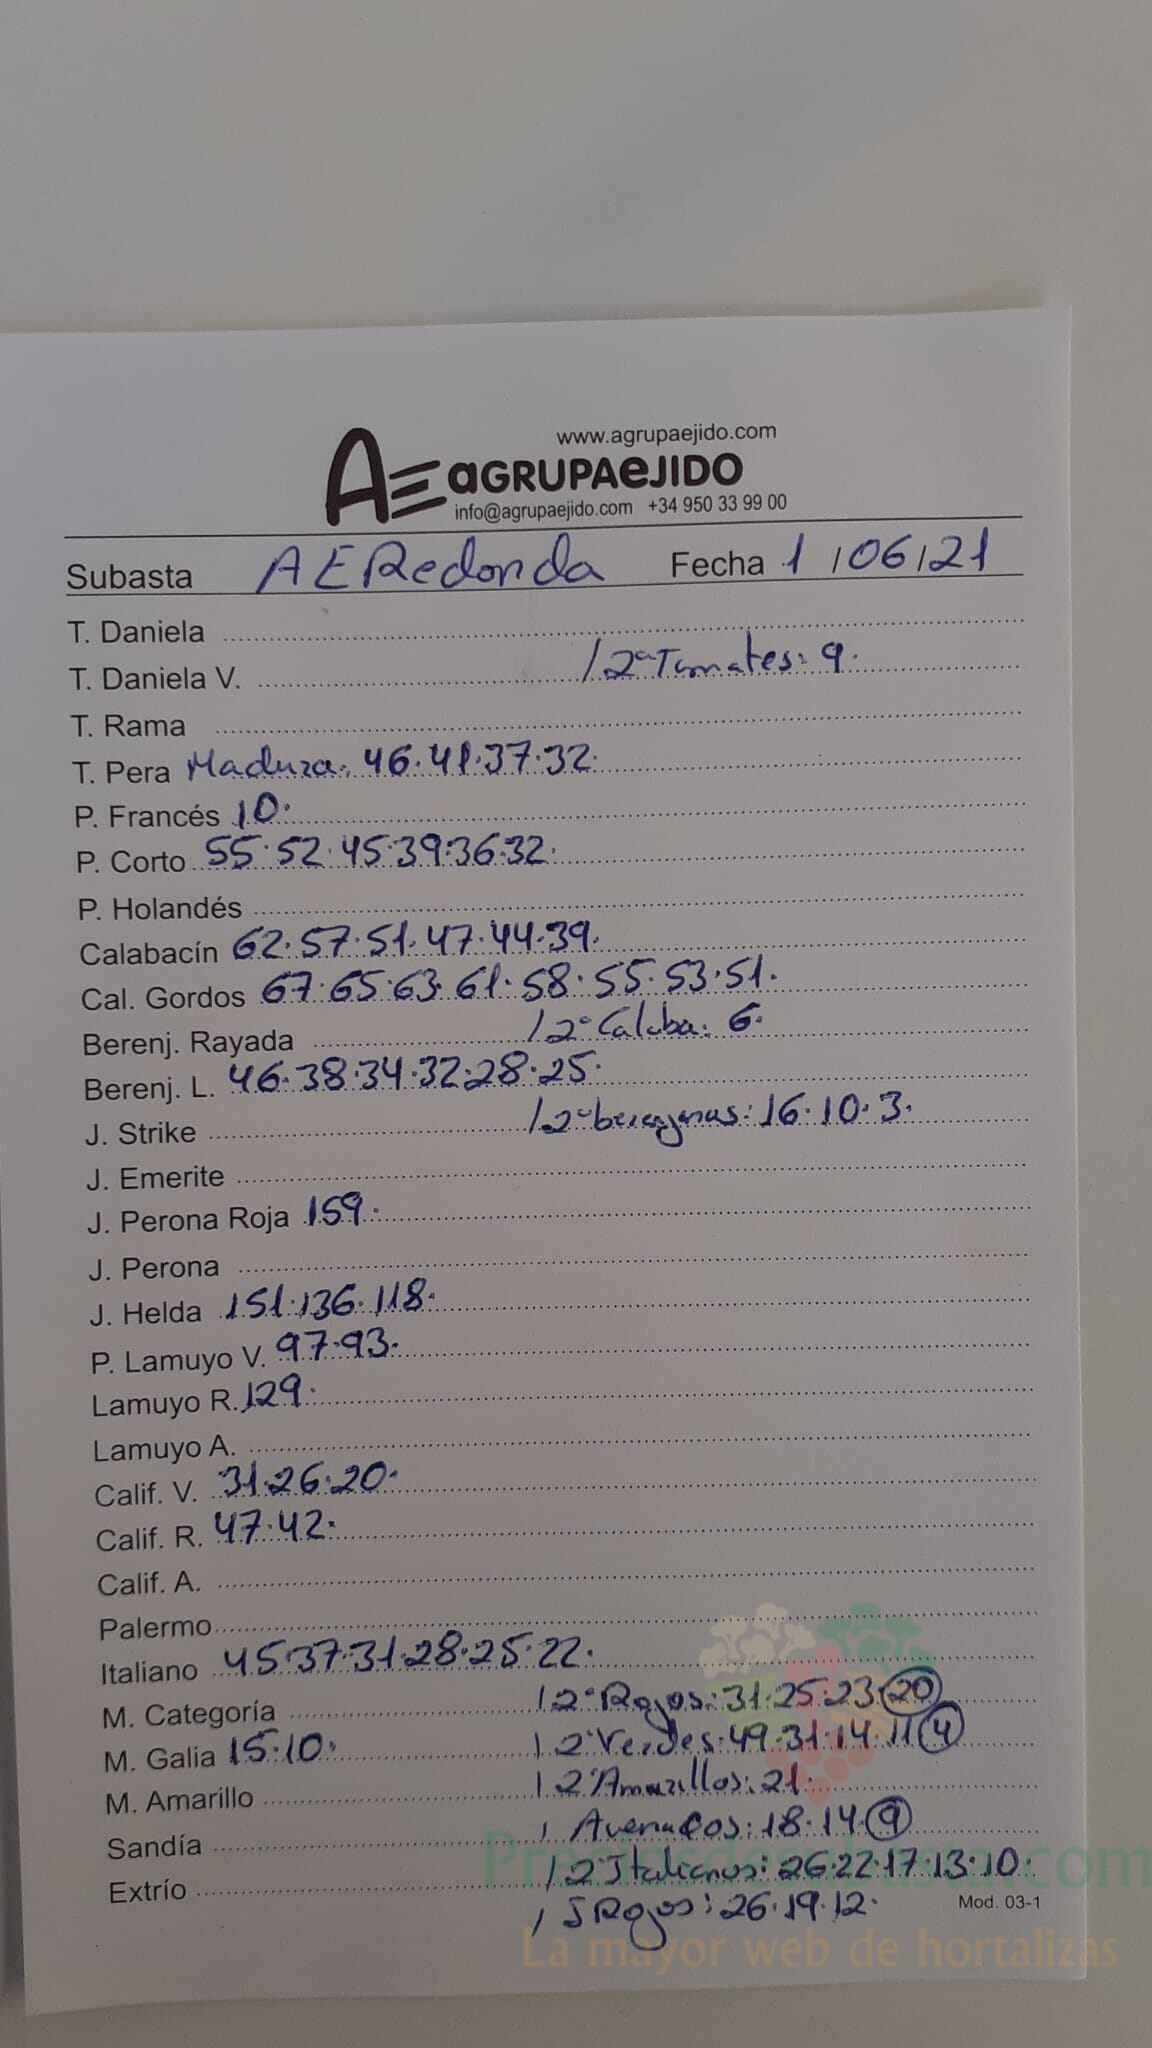 www.agrupaejido.com
AE aGRUPAeJIDO
info@agrupaejido.com +34 950 33 99 00
Subasta AERedonda Fecha 1/06/21
T. Daniela
T. Daniela V. /2ª Tomates: 9.
T. Rama
T. Pera Madura. 46.41.37.32.
P. Francés 10.
P. Corto 55.52.45.39.36.32.
P. Holandés
Calabacín 62.57.51.47.44.39.
Cal. Gordos 67.65.63.61.58.55.53.51.
Berenj. Rayada /2ª Calaba: 6.
Berenj. L. 46.38.34.32.28.25.
J. Strike /2ª berenjenas: 16.10.3.
J. Emerite
J. Perona Roja 159.
J. Perona
J. Helda 151.136.118.
P. Lamuyo V. 97.93.
Lamuyo R. 129.
Lamuyo A.
Calif. V. 31.26.20.
Calif. R. 47.42.
Calif. A.
Palermo
Italiano 45.37.31.28.25.22.
M. Categoría /2ª Rojos: 31.25.23.20
M. Galia 15.10. /2ª Verdes: 49.31.14.11.4
M. Amarillo /2ª Amarillos: 21.
Sandía / Averiados: 18.14.9
Extrío /2ª Italianos: 26.22.17.13.10.
/ I Rojos: 26.19.12.
Mod. 03-1
Preciosdesubasta.com
La mayor web de hortalizas